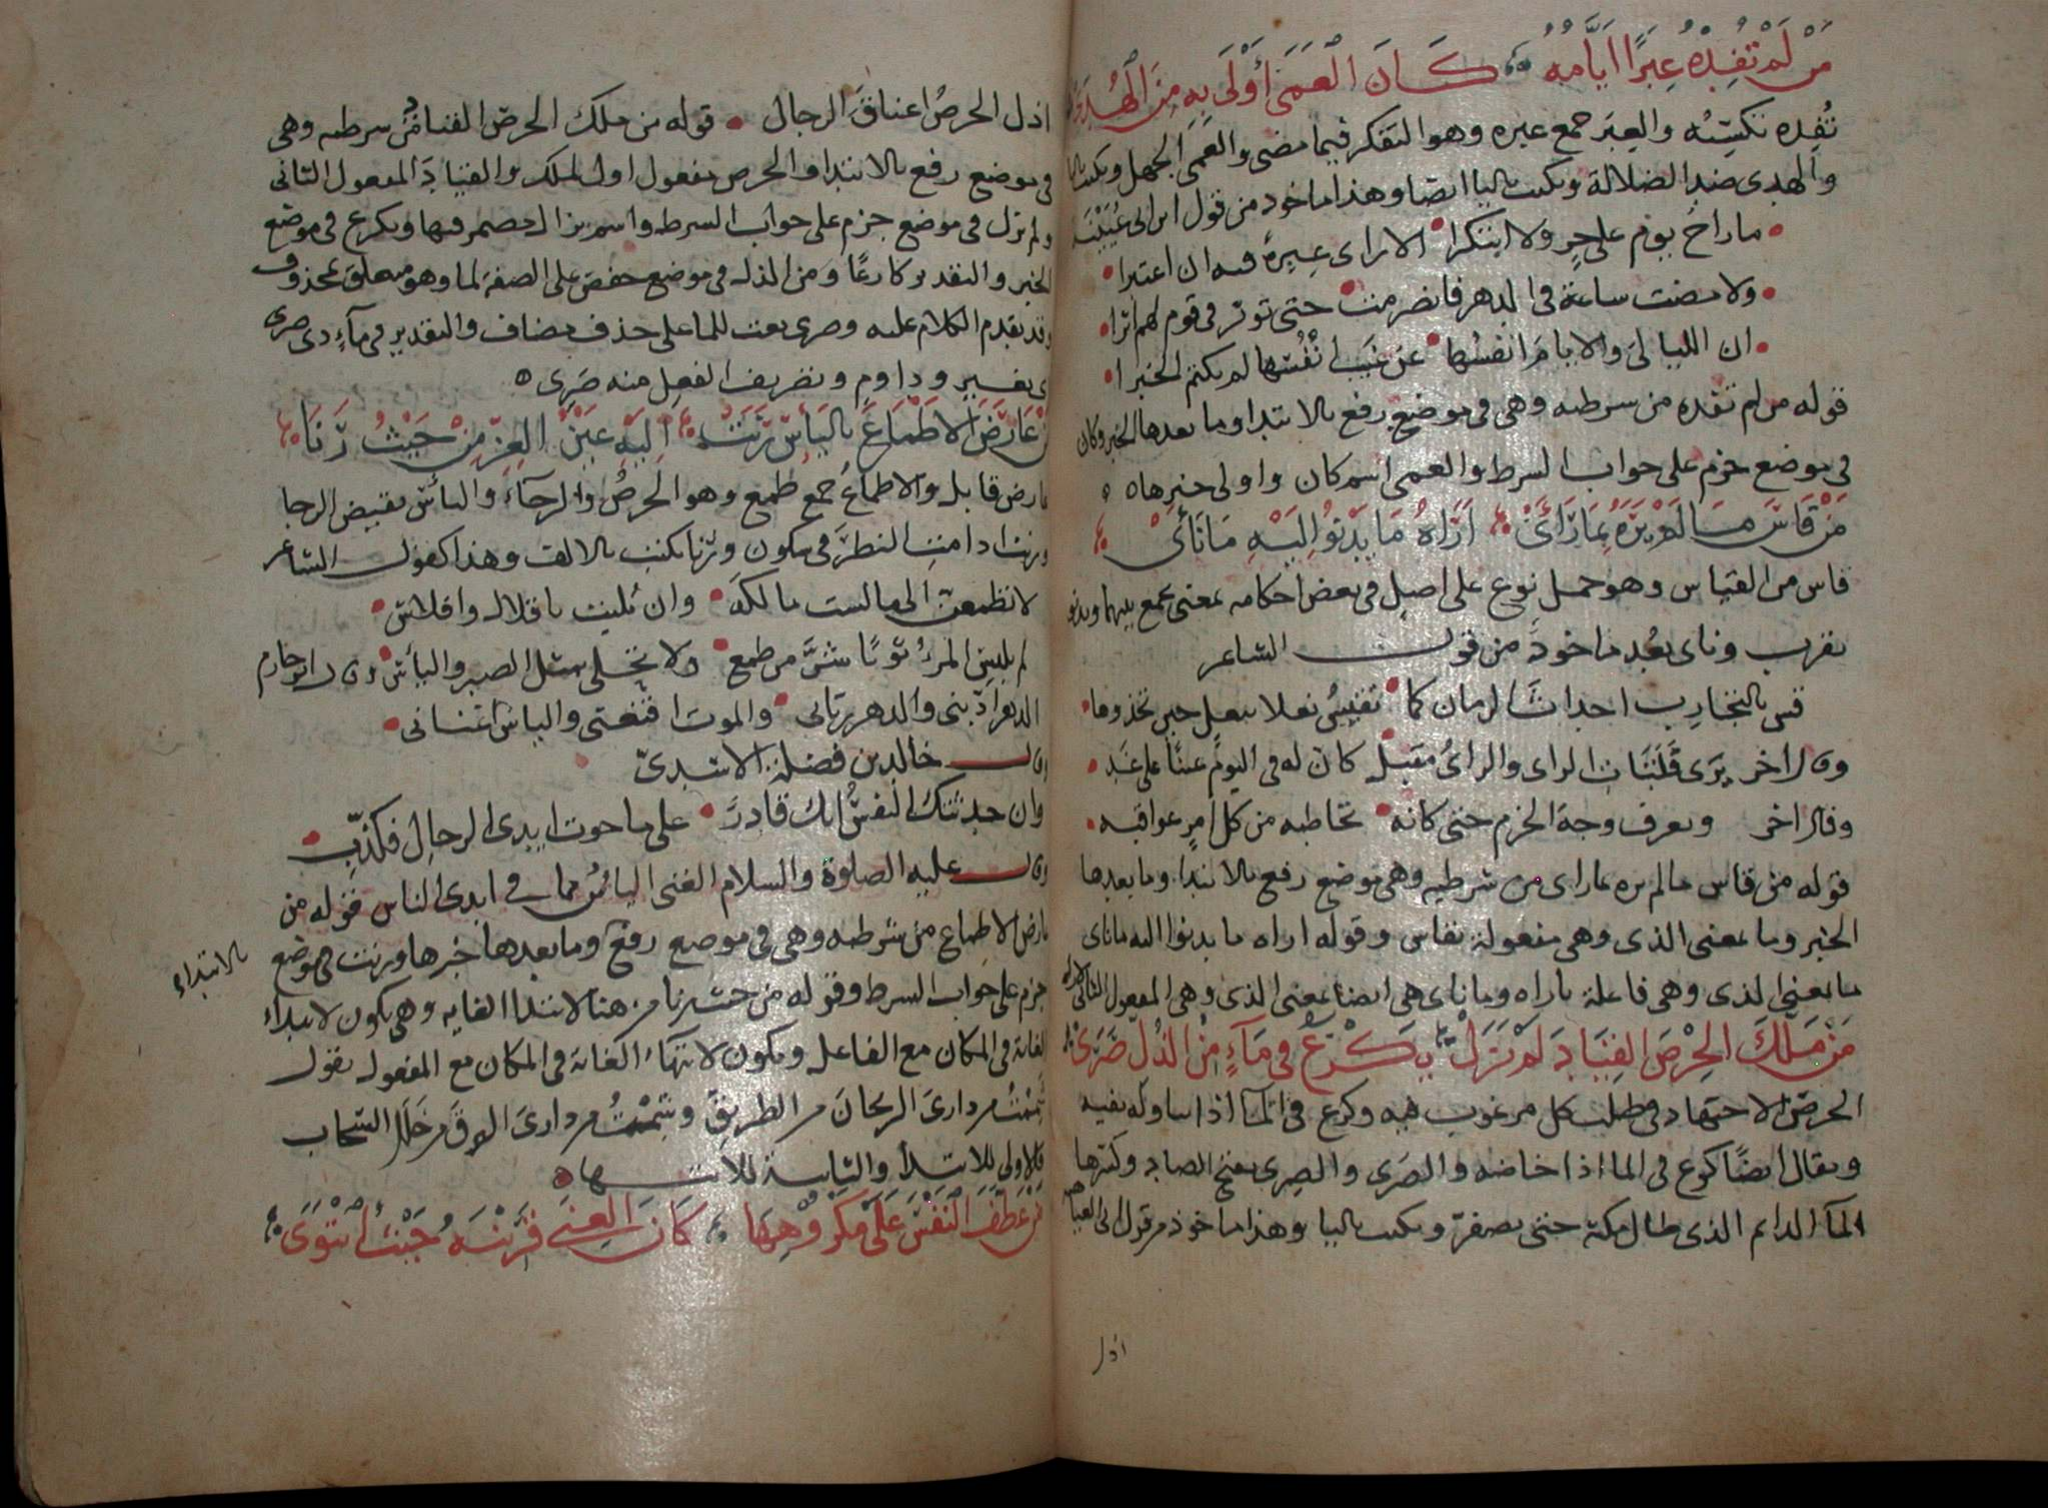 مَنْ لَمْ تُفِدْهُ عِبَرًا أَيَّامُهُ كَانَ الْعَمَى أَوْلَى بِهِ مِنَ الْهُدَى
تُفِده تكسبه والعِبَر جمع عبره وهو التفكر فيما مضى والعمى الجهل ويكتب باليا
والهدى ضد الضلالة ويكتب باليا ايضا وهذا ماخوذ من قول ابن ابى عُيَيْنَة
ما راح يوم على حيٍ ولا ابتكرا الا راى عبرةً فيه ان اعتبرا
ولا مضت ساعة فى الدهر فانصرمت حتى توثر فى قوم لهم اثرا
ان الليالىَ والايامَ انفسُها عن غيب انفُسها لم تكتم الخبرا
قوله من لم تفده من شرطيه وهى فى موضع رفع بالابتدا وما بعدها الخبر وكان
فى موضع جزم على جواب الشرط والعمى اسم كان واولى خبرها ه
مَنْ قَاسَ مَا لَمْ يَرَهُ بِمَا رَأَى أَرَاهُ مَا يَدْنُو إِلَيْهِ مَا نَأَى
قاس من القياس وهو حمل نوع على اصل فى بعض احكامه بمعنى يجمع بينهما ويدنو
يقرب وناى بعُد ماخوذ من قول الشاعر
قس بالتجارب احداثَ الزمان كما تقيسُ نعلا بنعل حين تحذوها
وقال اخر يرى فلتات الراى والراىُ مقبل كان له فى اليوم عينًا على غد
وقال اخر ويعرف وجهَ الحزم حتى كانه تخاطبه من كل امرٍ عواقبه
قوله من قاس ما لم يره بما راى من شرطيه وهى موضع رفع بالابتدا وما بعدها
الخبر وما بمعنى الذى وهى مفعولة بقاس وقوله اراه ما يدنوا اليه ما ناى
ما بمعنى الذى وهى فاعلة باراه وما ناى هى ايضا بمعنى الذى وهى المفعول الثانى لاراه
مَنْ مَلَّكَ الْحِرْصَ الْقِيَادَ لَمْ يَزَلْ يَكْرَعُ فِى مَآءٍ مِنَ الذُّلِّ صَرَى
الحرص الاجتهاد فى طلب كل مرغوب فيه وكرع فى المآ اذا تناوله بفيه
ويقال ايضًا كرع فى الما اذا خاضه والصَرَى والصِرى بفتح الصاد وكسرها
المآ الدايم الذى طال مكثه حتى يصفرّ ويكتب باليا وهذا ماخوذ من قول ابى العتاهيه
اذل
اذل الحرصُ اعناقَ الرجال قوله من ملك الحرصَ القياد من شرطيه وهى
فى موضع رفع بالابتدا والحرص مفعول اول لملك والقيادَ المفعول الثانى
ولم يزل فى موضع جزم على جواب الشرط واسم يزال مضمر فيها ويكرع فى موضع
الخبر والتقدير كارعًا ومن الذل فى موضع خفض على الصفة لما وهو متعلق بمحذوف
وقد تقدم الكلام عليه وصرى نعت للما على حذف مضاف والتقدير فى مآءٍ ذى صرى
اى تغيير ودوام وتصريف الفعل منه صَرِى ه
مَنْ عَارَضَ الْأَطْمَاعَ بِالْيَأْسِ رَنَتْ إِلَيْهِ عَيْنُ الْعِزِّ مِنْ حَيْثُ رَنَا
عارض قابل والاطماعُ جمع طمع وهو الحرصُ والرجآءُ والياسُ نقيض الرجا
ورنت ادامت النظرَ فى سكون ورنا يكتب بالالف وهذا كقول الشاعر
لا تطمعن الى ما لست مالكَهُ وان بُليت باقلال وافلاس
لم يلبس المرءُ ثوبًا شرَّ من طمع ولا تحلى بمثل الصبر والياس وقال ابو حازم
الدهر ادّبنى والدهر ربانى والموت اقنعنى والياس اغنانى
وقال خالد بن فضلة الاسدىّ
وان حدثتك النفسُ انك قادرٌ على ما حوت ايدى الرجال فكذّب
وقال عليه الصلوة والسلام الغنى الياسُ مما فى ايدى الناس قوله من
عارض الاطماع من شرطيه وهى فى موضع رفع وما بعدها خبرها ورنت فى موضع
بالابتداء
جزم على جواب الشرط وقوله من حيث رنا من هنا لابتدا الغايه وهى تكون لابتداء
الغاية فى المكان مع الفاعل وتكون لانتهاء الغاية فى المكان مع المفعول تقول
شمِمتُ من دارى الريحانَ من الطريق وشِمْتُ من دارى البرقَ من خلل السحاب
فالاولى للابتدا والثانية للانتهاء ه
مَنْ عَطَفَ النَّفْسَ عَلَى مَكْرُوهِهَا كَانَ الْغِنَى قَرِينَهُ حَيْثُ انْتَوَى